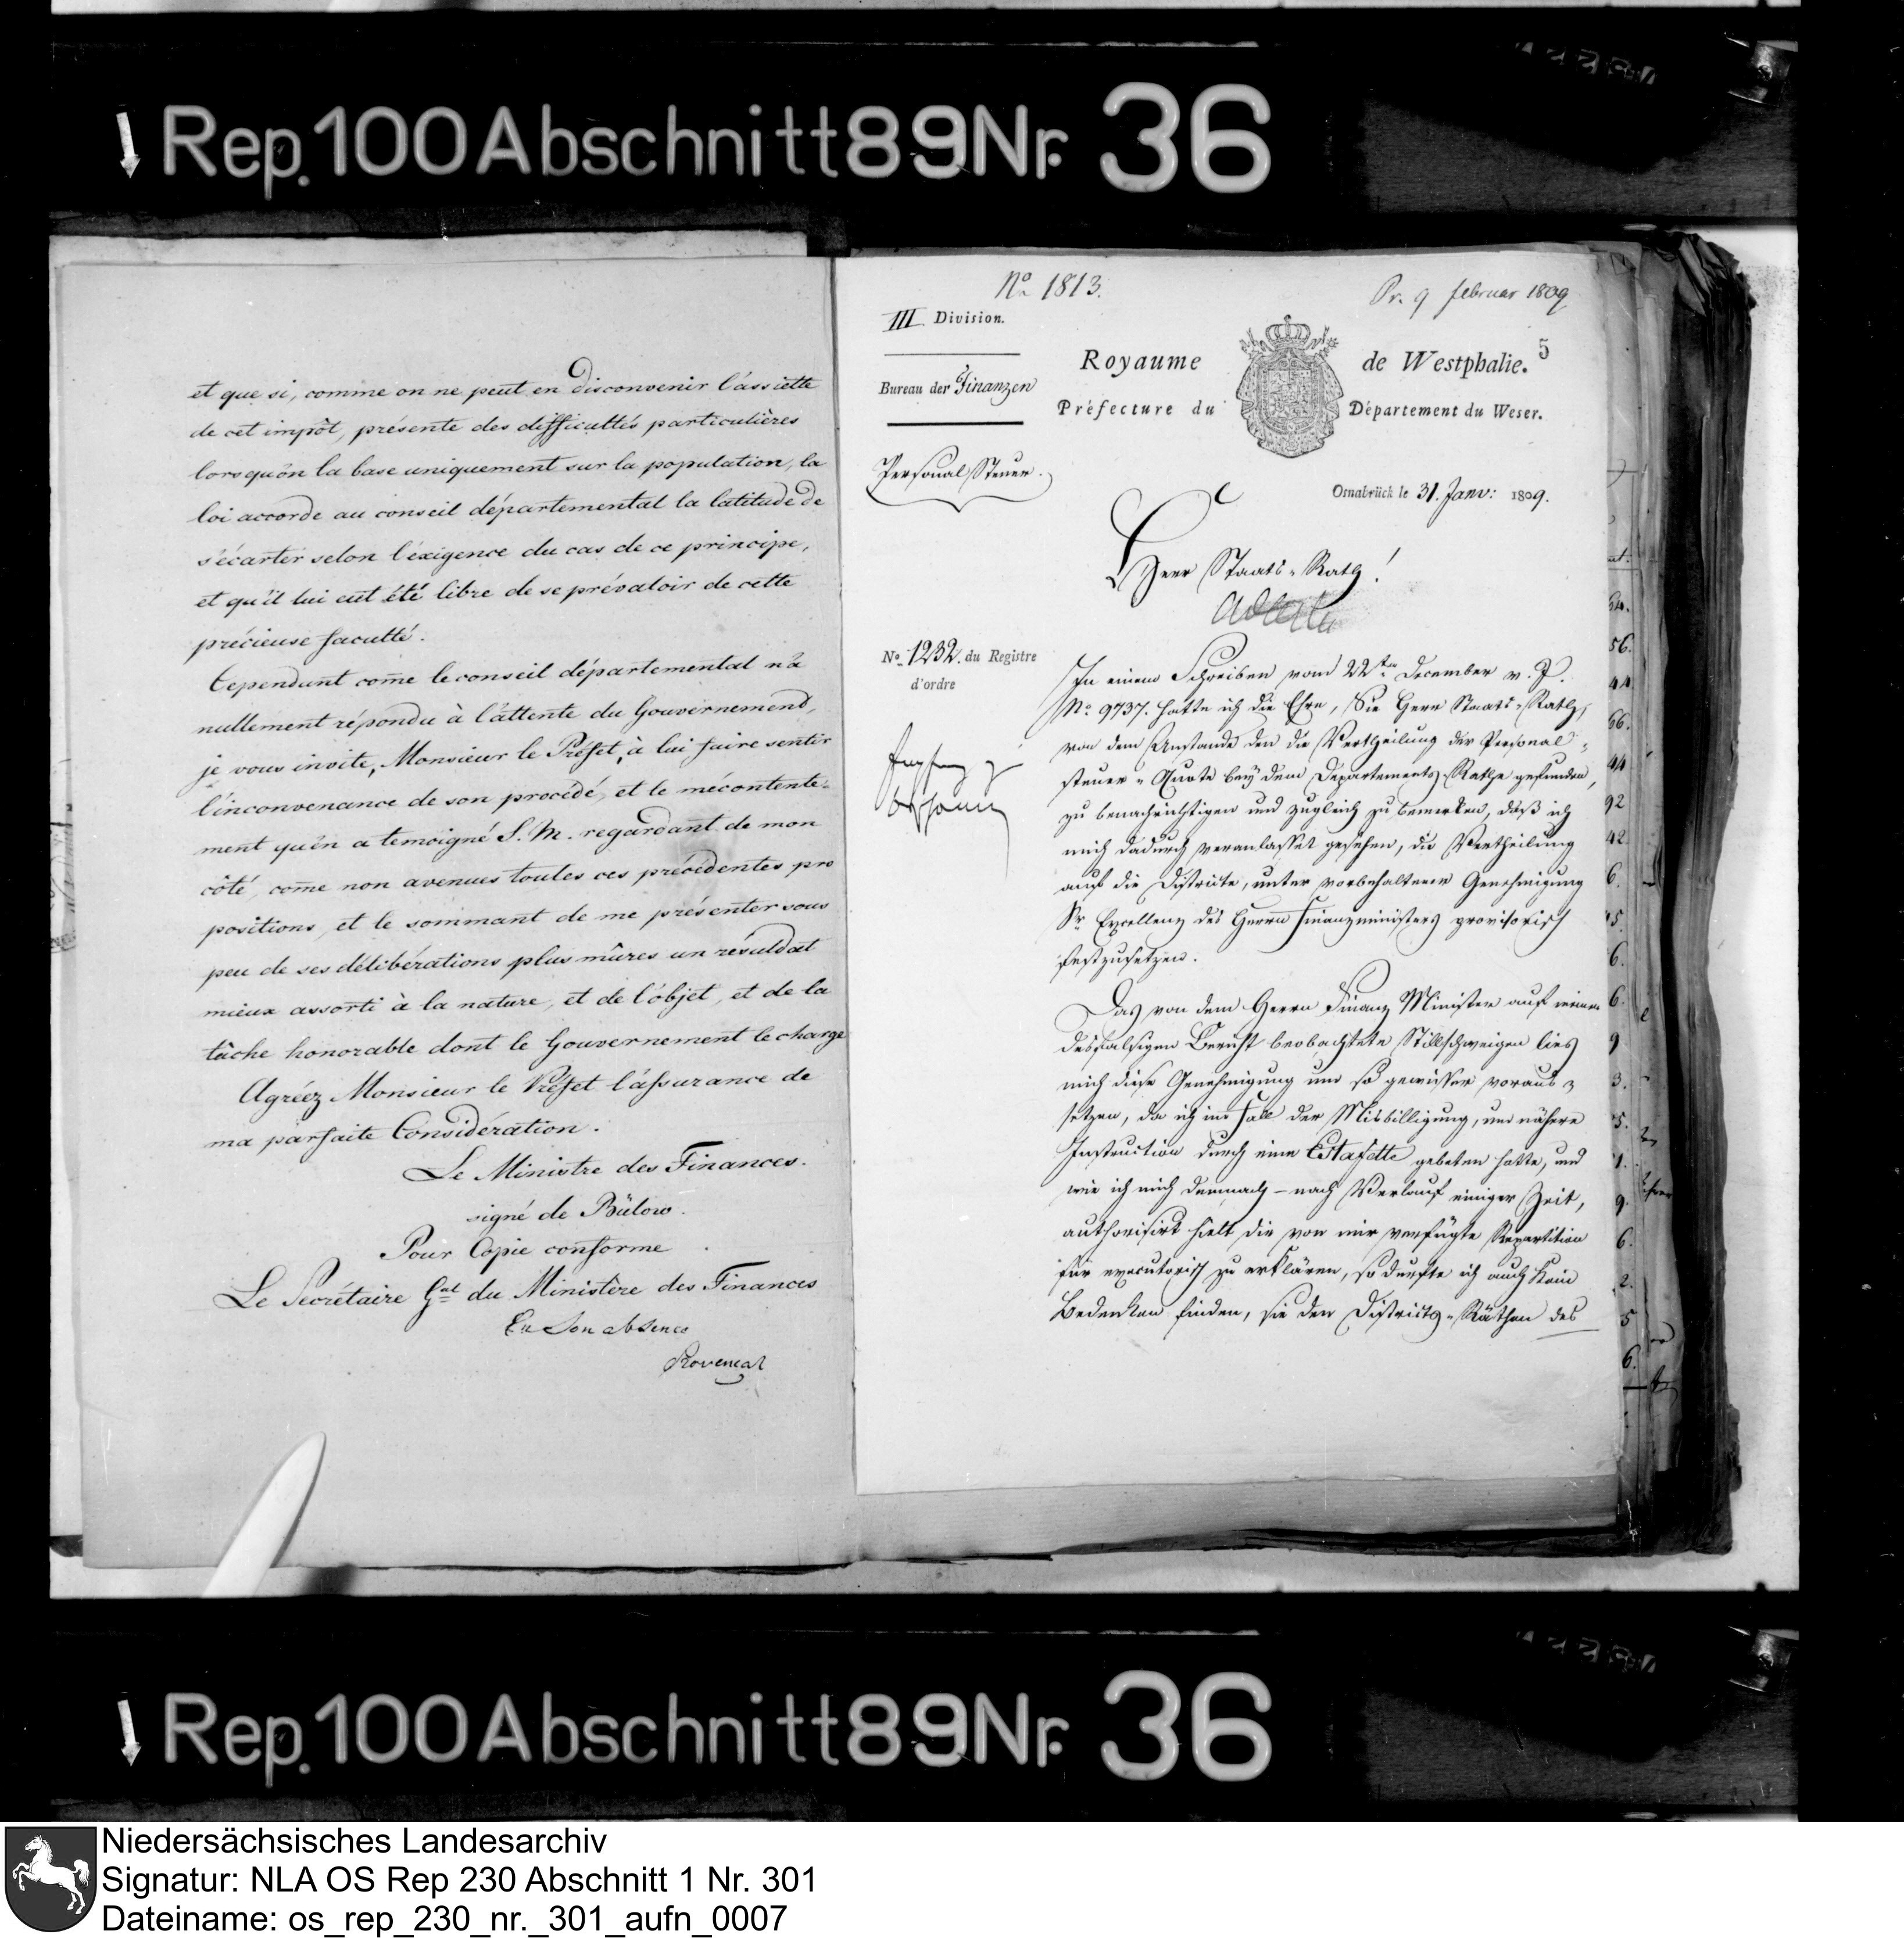 Rep. 100 Abschnitt 89 Nr. 36
et que si, comme on ne peut en disconvenir l'assiette
de cet impôt, présente des difficultés particulières
lorsqu'on la base uniquement sur la population, la
loi accorde au conseil départemental la latitude de
s'écarter selon l'éxigence du cas de ce principe,
et qu'il lui eut été libre de se prévaloir de cette
précieuse faculté.
Cependant come le conseil départemental n'a
nullement répondu à l'attente du Gouvernement,
je vous invite, Monsieur le Préfet, à lui faire sentir
l'inconvenance de son procédé, et le mécontente-
ment qu'en a temoigné S. M. regardant de mon
côté, come non avenues toutes ces précédentes pro
positions, et le sommant de me présenter sous
peu de ses délibérations plus mûres un résuldat
mieux assorti à la nature, et de l'objet, et de la
tâche honorable dont le Gouvernement le charge
Agréez Monsieur le Préfet l'assurance de
ma parfaite Considération.
Le Ministre des Finances.
signé de Bülow.
Pour Copie conforme
Le Secrétaire Gal du Ministère des Finances
En Son absence
Provençal
No 1813.
Pr. 9 februar 1809
III Division.
5
Royaume de Westphalie.
Bureau der Finanzen
Préfecture du Département du Weser.
Personal Steuer.
Osnabrück le 31. Janv: 1809.
Herr Staats-Rath!
No. 1232. du Registre
d'ordre
In einem Schreiben vom 22ten December v. J.
No. 9737. hatte ich die Ehre, Sie Herr Staats-Rath,
von dem Anstande den die Vertheilung der Personal-
steuer-Quote bey dem Departements-Rathe gefunden,
zu benachrichtigen und zugleich zu bemerken, daß ich
mich dadurch veranlasset gesehen, die Vertheilung
auf die Districte, unter vorbehaltener Genehmigung
Sr Excellenz des Herrn Finanzministers provisorisch
festzusetzen.
Das von dem Herrn Finanz Minister auf meinen
desfalsigen Bericht beobachtete Stillschweigen lies
mich diese Genehmigung um so gewisser voraus-
setzen, da ich im Fall der Misbilligung, um nähere
Instruction durch eine Estafette gebeten hatte, und
wie ich mich demnach – nach Verlauf einiger Zeit,
authorisirt hielt die von mir verfügte Repartition
für executorisch zu erklären, so durfte ich auch kein
Bedenken finden, sie den Districts-Räthen des
Rep. 100 Abschnitt 89 Nr. 36
Niedersächsisches Landesarchiv
Signatur: NLA OS Rep 230 Abschnitt 1 Nr. 301
Dateiname: os_rep_230_nr._301_aufn_0007